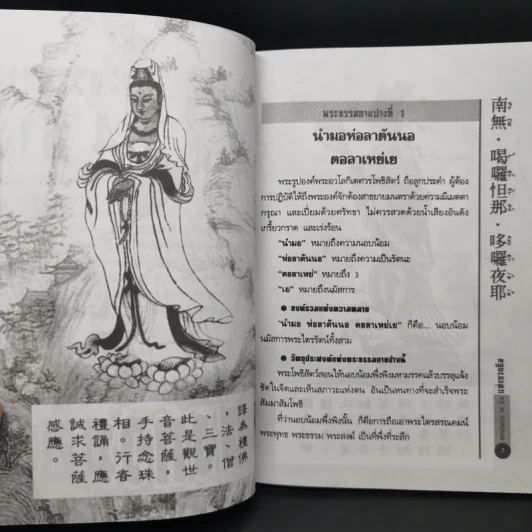 譯為禮佛
，法、僧
、三寶。
此是觀世
音菩薩，
手持念珠
相。行者
禮誦，應
誠求菩薩
感應。
พระธรรมกายปางที่ 1
นำมอห่อลาตันนอ
ตอลาเหย่เย
พระรูปองค์พระอวโลกิเตศวรโพธิสัตว์ ถือลูกประคำ ผู้ต้อง
การปฏิบัติให้ถึงพระองค์จักต้องสาธยายมนตราด้วยความมีเมตตา
กรุณา และเปี่ยมด้วยศรัทธา ไม่ควรสวดด้วยน้ำเสียงอันดัง
เกรี้ยวกราด และเร่งร้อน
"นำมอ" หมายถึงความนอบน้อม
"ห่อลาตันนอ" หมายถึงความเป็นรัตนะ
"ตอลาเหย่" หมายถึง 3
"เย" หมายถึงนมัสการ
● องค์รวมแห่งความหมาย
"นำมอ ห่อลาตันนอ ตอลาเหย่เย" ก็คือ... นอบน้อม
นมัสการพระไตรรัตน์ทั้งสาม
● วัตถุประสงค์แห่งพระธรรมกายปางนี้
พระโพธิสัตว์สอนให้นอบน้อมพึ่งพิงมหามรรคแล้วบรรลุแจ้ง
ชัดในจิตและเห็นสภาวะแห่งตน อันเป็นหนทางที่จะสำเร็จพระ
สัมมาสัมโพธิ
ที่ว่านอบน้อมพึ่งพิงนั้น ก็คือการถือเอาพระไตรสรณคมน์
พระพุทธ พระธรรม พระสงฆ์ เป็นที่พึ่งที่ระลึก
南無・喝囉怛那・哆囉夜耶
7